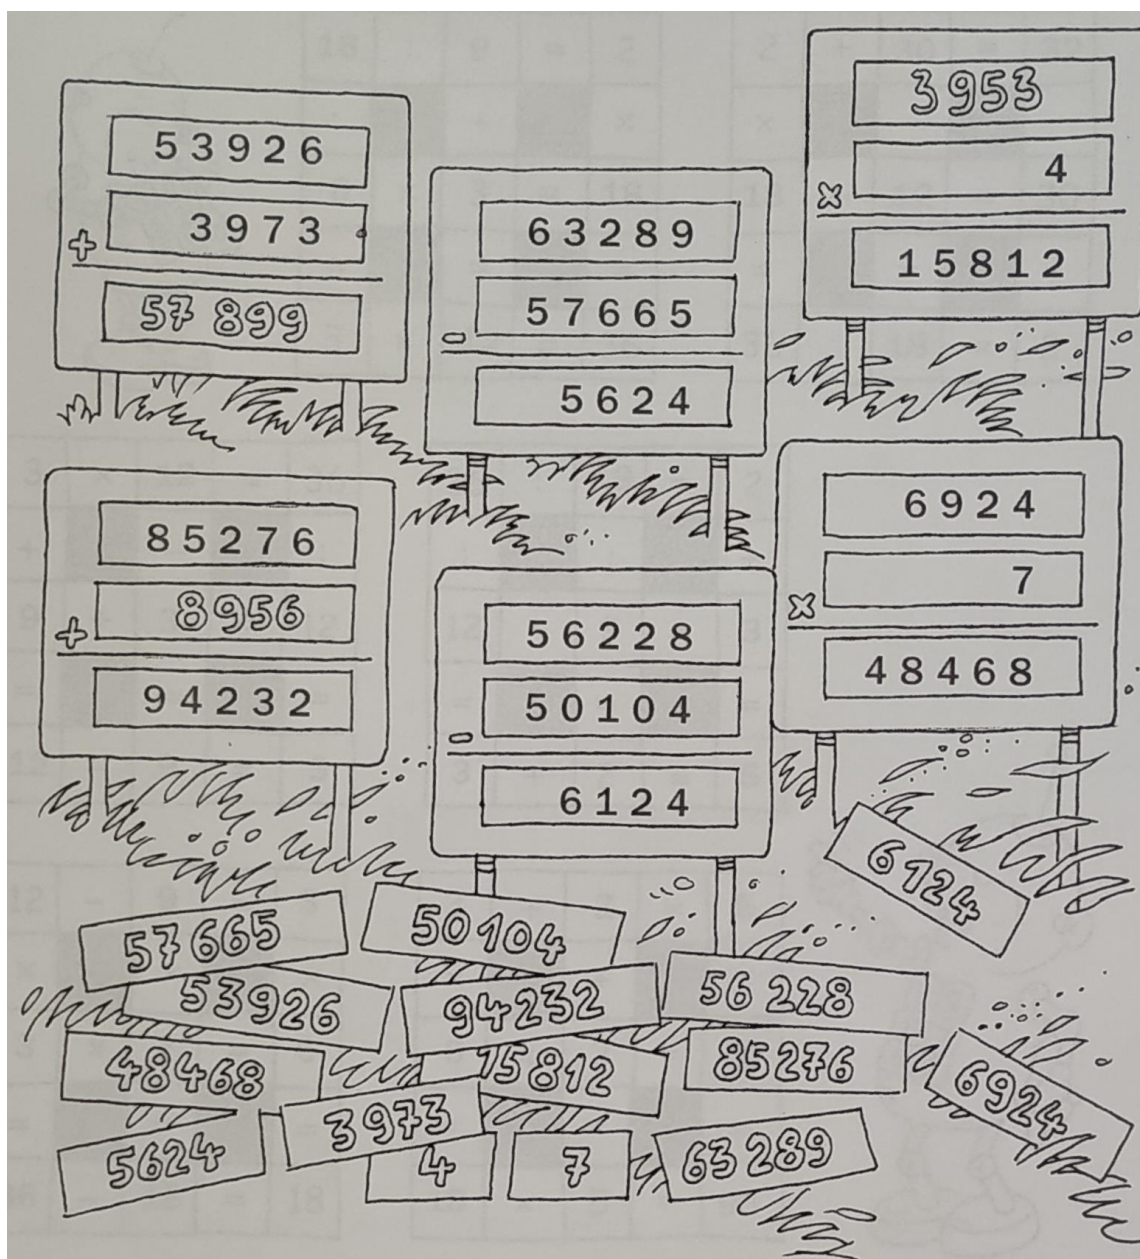 53926
+ 3973
57 899
63289
- 57665
5624
3953
× 4
15812
85276
+ 8956
94232
56228
- 50104
6124
6924
× 7
48468
6124
57665
50104
53926
94232
56 228
48468
15812
85276
6924
3973
5624
4
7
63 289